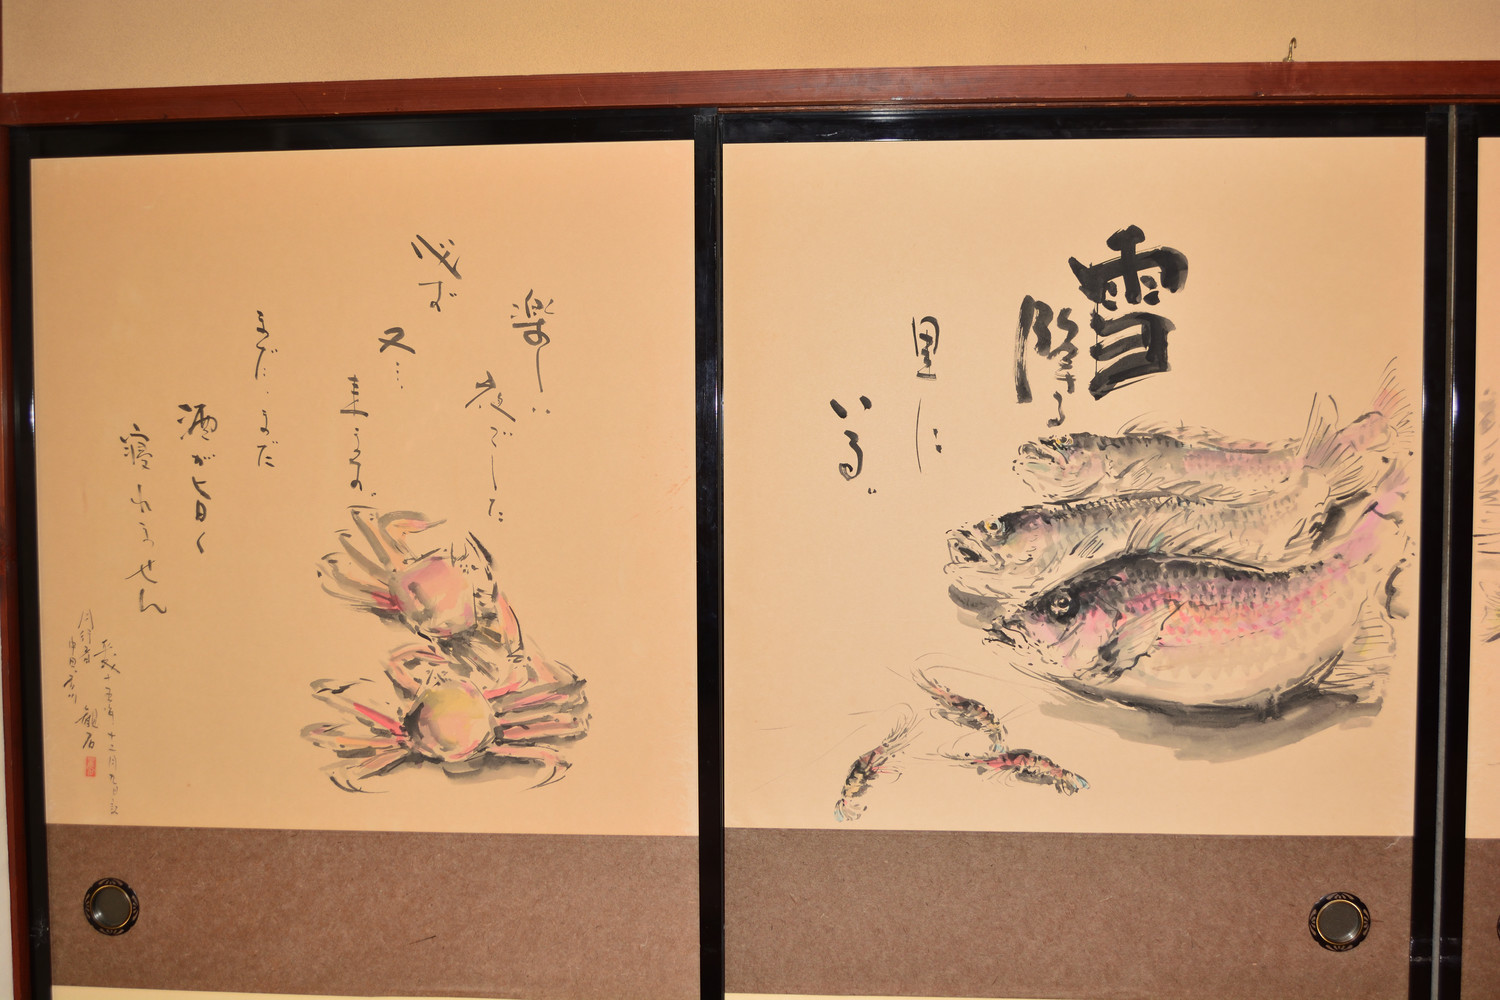 雪
降る
里に
いる。
楽しい
夜でした
必ず
又…
来ます。
まだ、まだ
酒が旨く
寝れません
観石